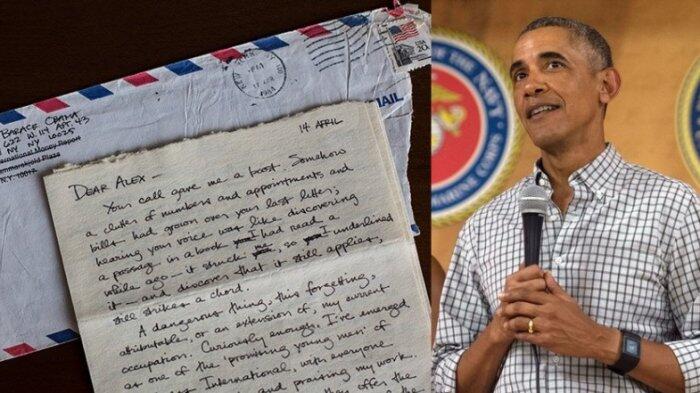 BARACK OBAMA
622 W. 114 APT. 43
NY NY 10025
International Money Report
Plaza
N.Y. 10017
USA 20
MAIL
14 APRIL
DEAR ALEX —
Your call gave me a boost. Somehow
a clutter of numbers and appointments and
bills had grown over your last letter;
hearing your voice was like discovering
a passage in a book I had read a
while ago — it struck me, so I underlined
it — and discover that it still applies,
still strikes a chord.
A dangerous thing, this forgetting,
attributable, or an extension of, my current
occupation. Curiously enough, I've emerged
as one of the "promising young men" of
International, with everyone
and praising my work.
they offer the
OF THE NAVY
MARINE CORPS